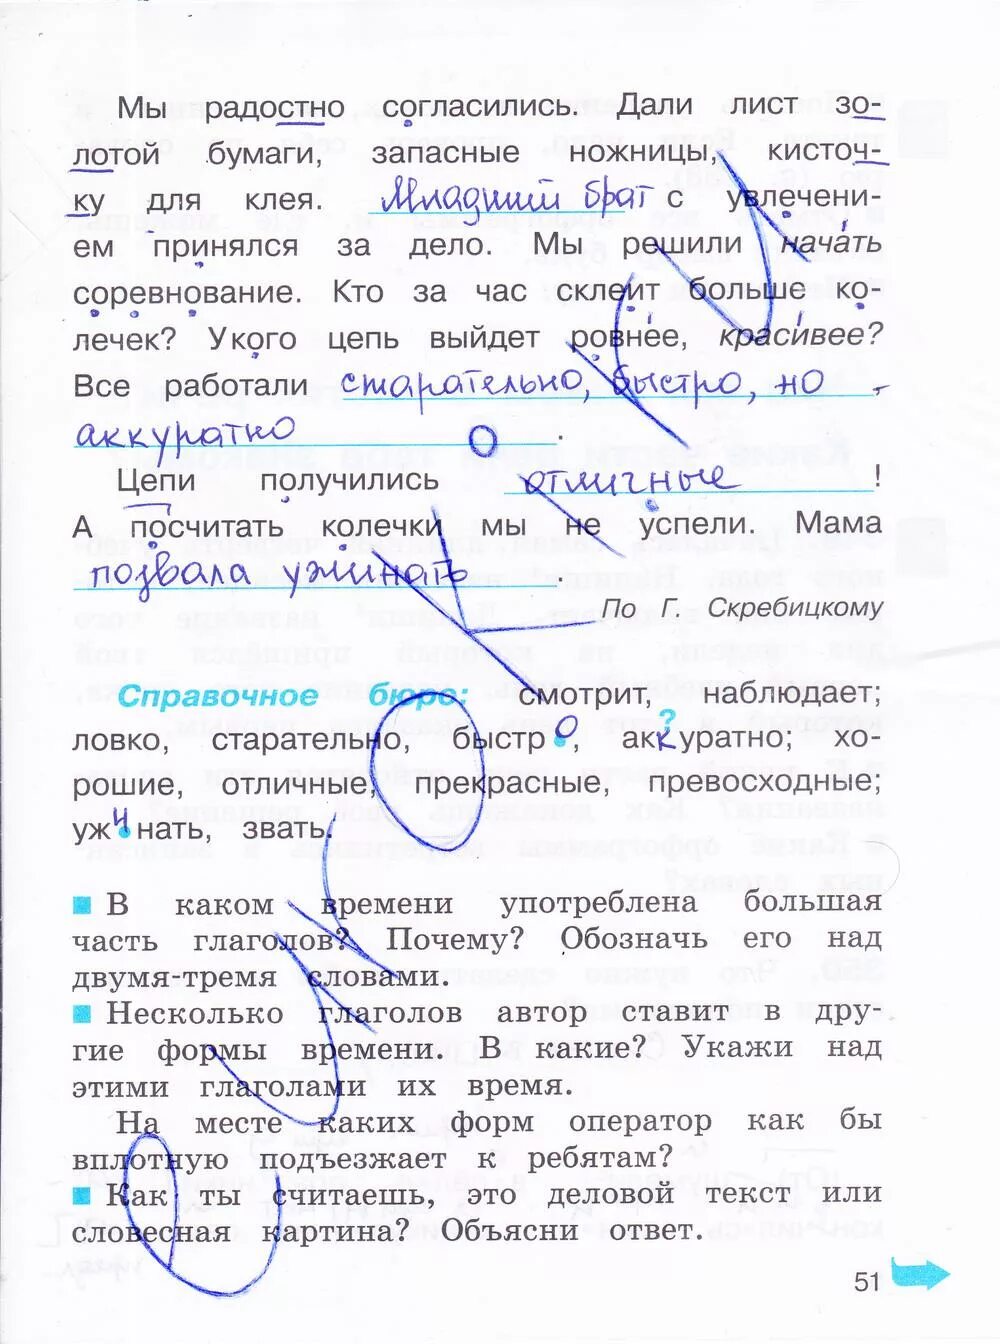 Мы радостно согласились. Дали лист зо-
лотой бумаги, запасные ножницы, кисточ-
ку для клея. Младший брат с увлечени-
ем принялся за дело. Мы решили начать
соревнование. Кто за час склеит больше ко-
лечек? У кого цепь выйдет ровнее, красивее?
Все работали старательно, быстро, но
аккуратно.
Цепи получились отличные!
А посчитать колечки мы не успели. Мама
позвала ужинать.
По Г. Скребицкому
Справочное бюро: смотрит, наблюдает;
ловко, старательно, быстро, аккуратно; хо-
рошие, отличные, прекрасные, превосходные;
ужинать, звать.
В каком времени употреблена большая
часть глаголов? Почему? Обозначь его над
двумя-тремя словами.
Несколько глаголов автор ставит в дру-
гие формы времени. В какие? Укажи над
этими глаголами их время.
На месте каких форм оператор как бы
вплотную подъезжает к ребятам?
Как ты считаешь, это деловой текст или
словесная картина? Объясни ответ.
51